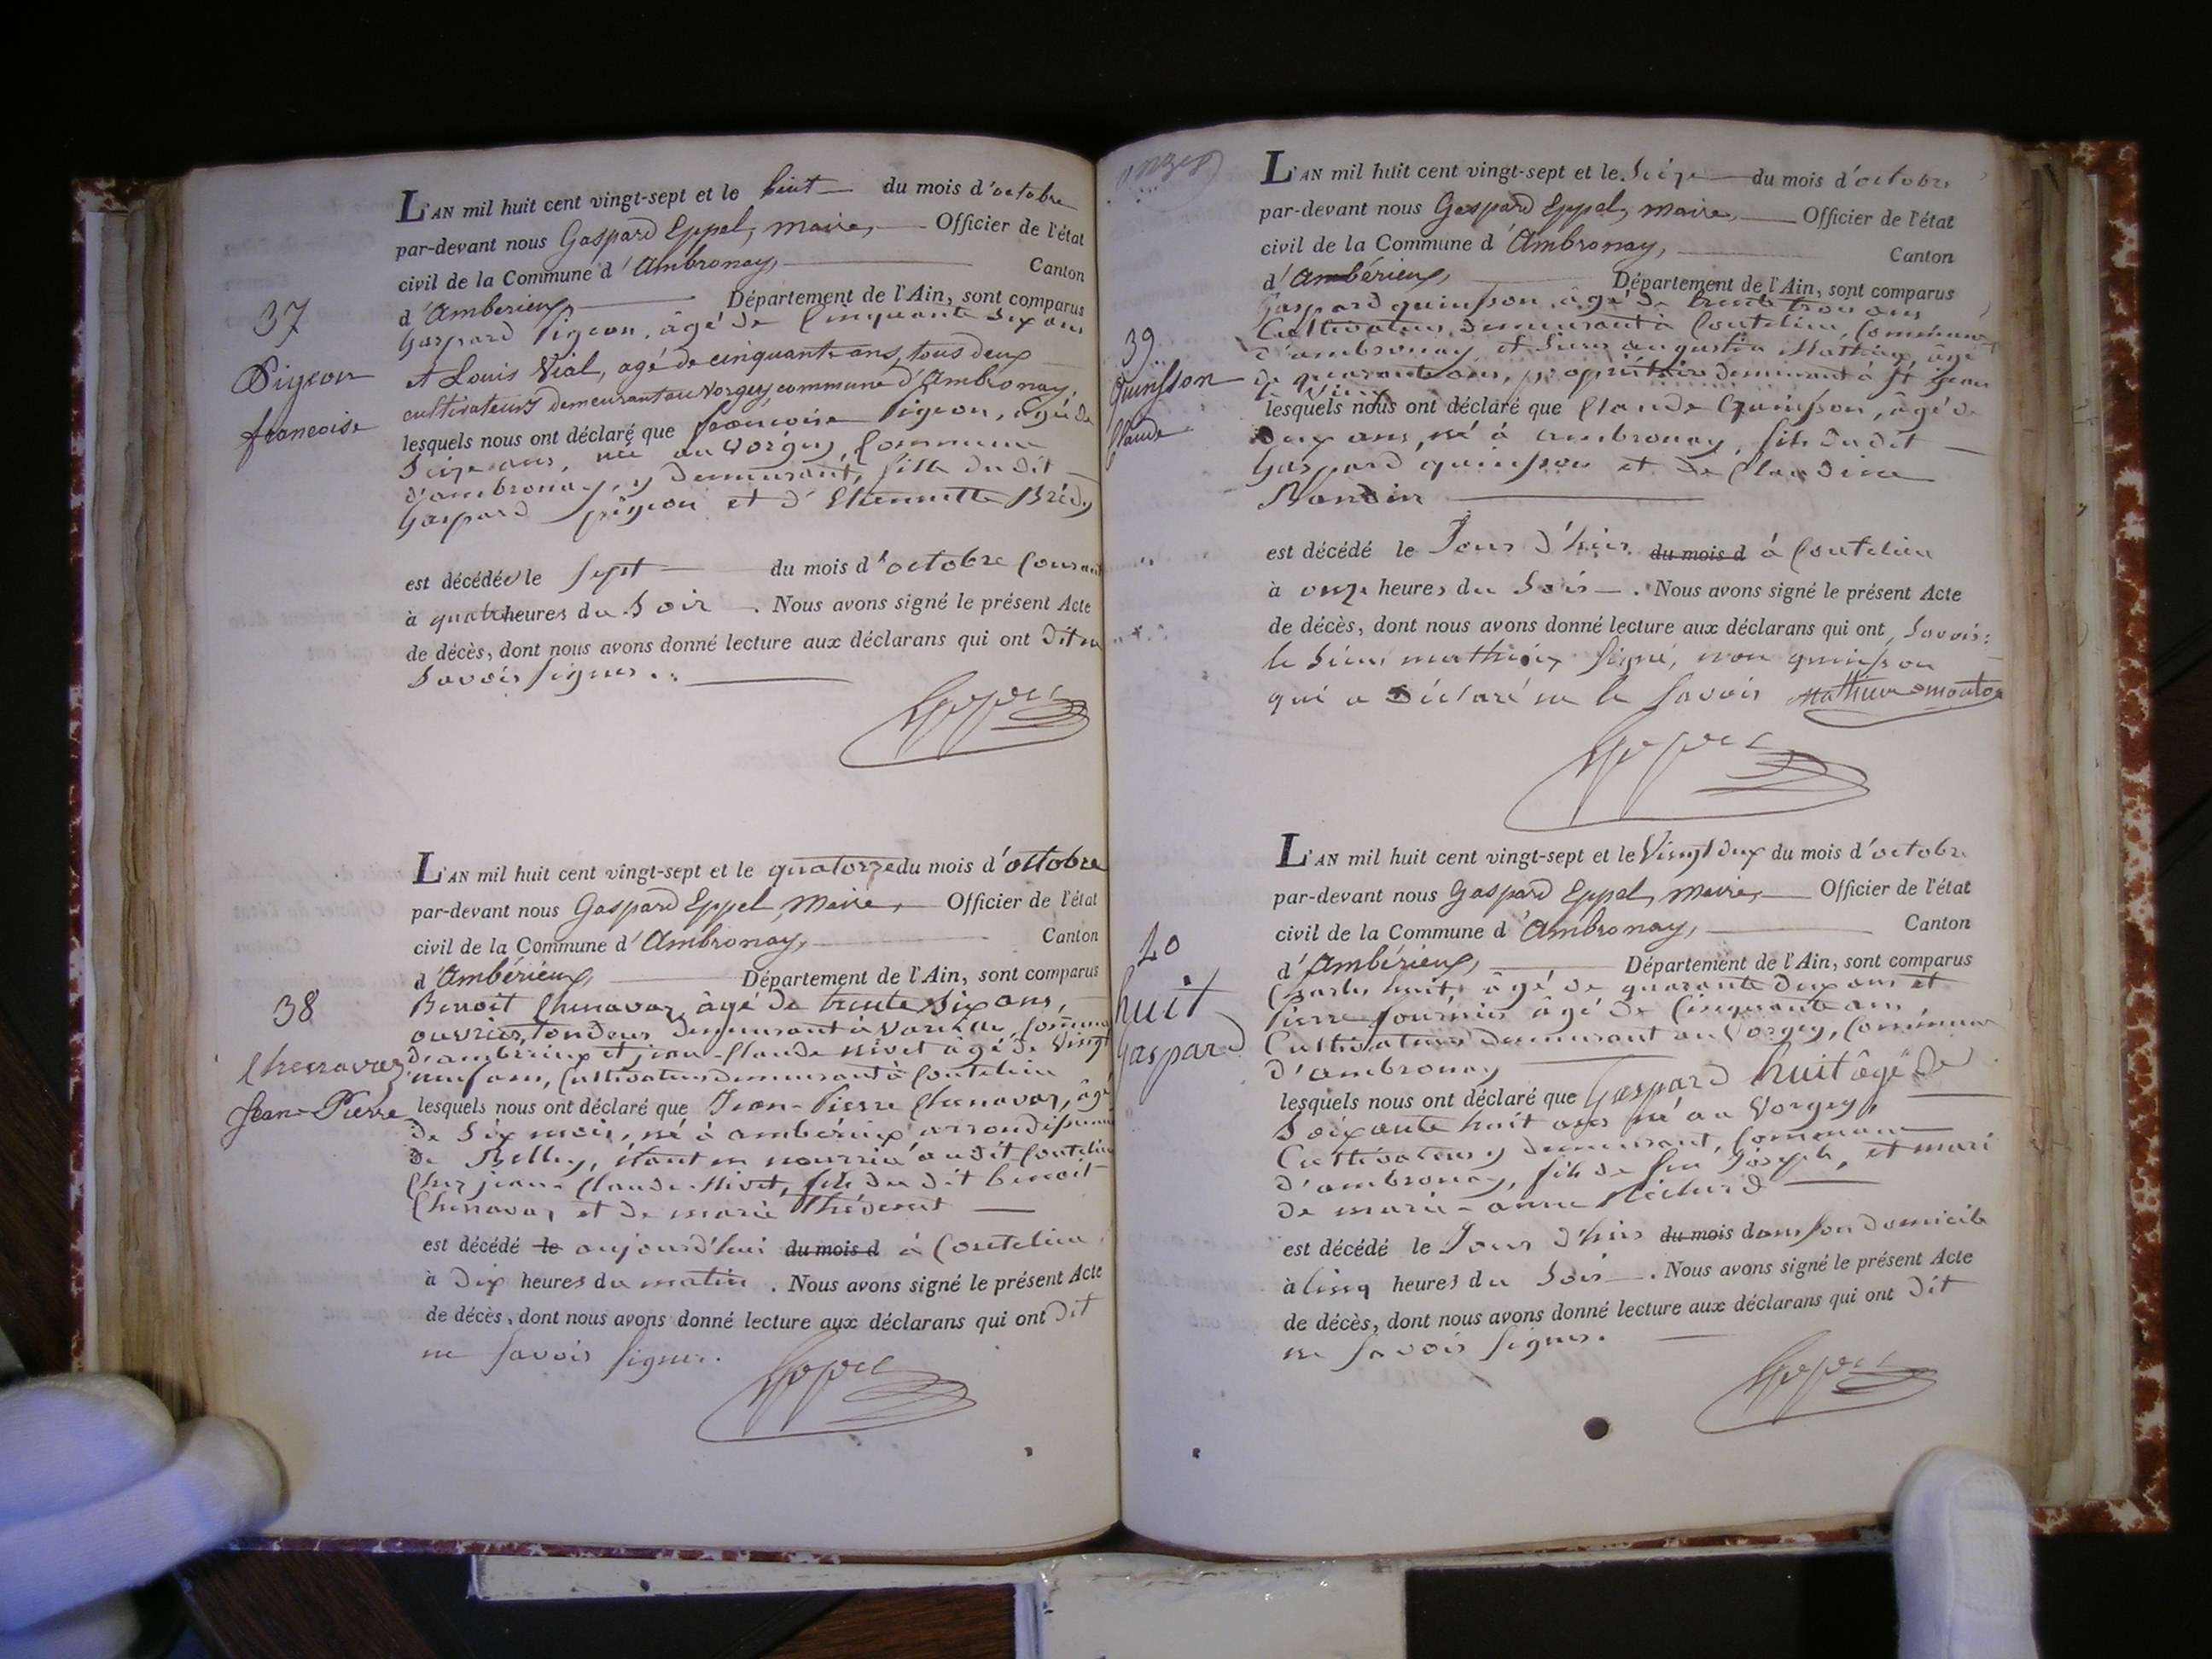 37
Pigeon
francoise
L'AN mil huit cent vingt-sept et le huit du mois d'octobre
par-devant nous Gaspard Eppel, maire, Officier de l'état
civil de la Commune d'Ambronay, Canton
d'Ambérieux, Département de l'Ain, sont comparus
Gaspard Pigeon, âgé de Cinquante six ans
et Louis Vial, agé de cinquante ans, tous deux
cultivateurs demeurant au Vorgey, commune d'Ambronay,
lesquels nous ont déclaré que francoise Pigeon, âgée de
Seize ans, née au Vorgey, Commune
d'ambronay, y demeurant, fille du dit
Gaspard pigeon et d'Etiennette Brédy
est décédée le Sept du mois d'octobre Courant
à quatre heures du Soir. Nous avons signé le présent Acte
de décès, dont nous avons donné lecture aux déclarans qui ont dit ne
Savoir signer.
38
Chenavaz
Jean-Pierre
L'AN mil huit cent vingt-sept et le quatorze du mois d'octobre
par-devant nous Gaspard Eppel, Maire, Officier de l'état
civil de la Commune d'Ambronay, Canton
d'Ambérieux, Département de l'Ain, sont comparus
Benoit Chenavaz, âgé de trente Six ans,
ouvrier tondeur demeurant à Commune
d'ambérieux et jean-Claude Nivet âgé de Vingt
neuf ans, Cultivateur demeurant à Coutelieu
lesquels nous ont déclaré que Jean-Pierre Chenavaz, âgé
de Six mois, né à ambérieux arrondissement
de Belley, étant en nourrice audit Coutelieu
Chez jean-Claude Nivet, fils du dit benoit
Chenavaz et de marie
est décédé le aujourd'hui du mois d à Coutelieu
à dix heures du matin. Nous avons signé le présent Acte
de décès, dont nous avons donné lecture aux déclarans qui ont dit
ne Savoir signer.
39
Quinsson
Claude
L'AN mil huit cent vingt-sept et le Seize du mois d'octobre
par-devant nous Gaspard Eppel, maire, Officier de l'état
civil de la Commune d'Ambronay, Canton
d'Ambérieux, Département de l'Ain, sont comparus
Gaspard quinsson, âgé de trente trois ans
Cultivateur demeurant à Coutelieu, Commune
d'ambronay et Sieur augustin Mathieux, âgé
de quarante ans, propriétaire demeurant à St jean
le Vieux
lesquels nous ont déclaré que Claude Quinsson, âgé de
Deux ans, né à ambronay, fils du dit
Gaspard quinsson et de Claudine
Bondin
est décédé le Jour d'hier du mois d à Coutelieu
à onze heures du Soir. Nous avons signé le présent Acte
de décès, dont nous avons donné lecture aux déclarans qui ont, Savoir:
le Sieur mathieux Signé, non quinsson
qui a Déclaré ne le Savoir
40
huit
gaspard
L'AN mil huit cent vingt-sept et le Vingt deux du mois d'octobre
par-devant nous Gaspard Eppel, Maire, Officier de l'état
civil de la Commune d'Ambronay, Canton
d'Ambérieux, Département de l'Ain, sont comparus
Charles huit, âgé de quarante deux ans et
Pierre fournier âgé de Cinquante ans
Cultivateurs demeurant au Vorgey, Commune
d'ambronay
lesquels nous ont déclaré que Gaspard huit âgé de
Soixante huit ans né au Vorgey,
Cultivateur y demeurant, Commune
d'ambronay, fils de feu Joseph, et mari
de marie-anne
est décédé le Jour d'hier du mois dans son domicile
à Cinq heures du Soir. Nous avons signé le présent Acte
de décès, dont nous avons donné lecture aux déclarans qui ont dit
ne Savoir Signer.